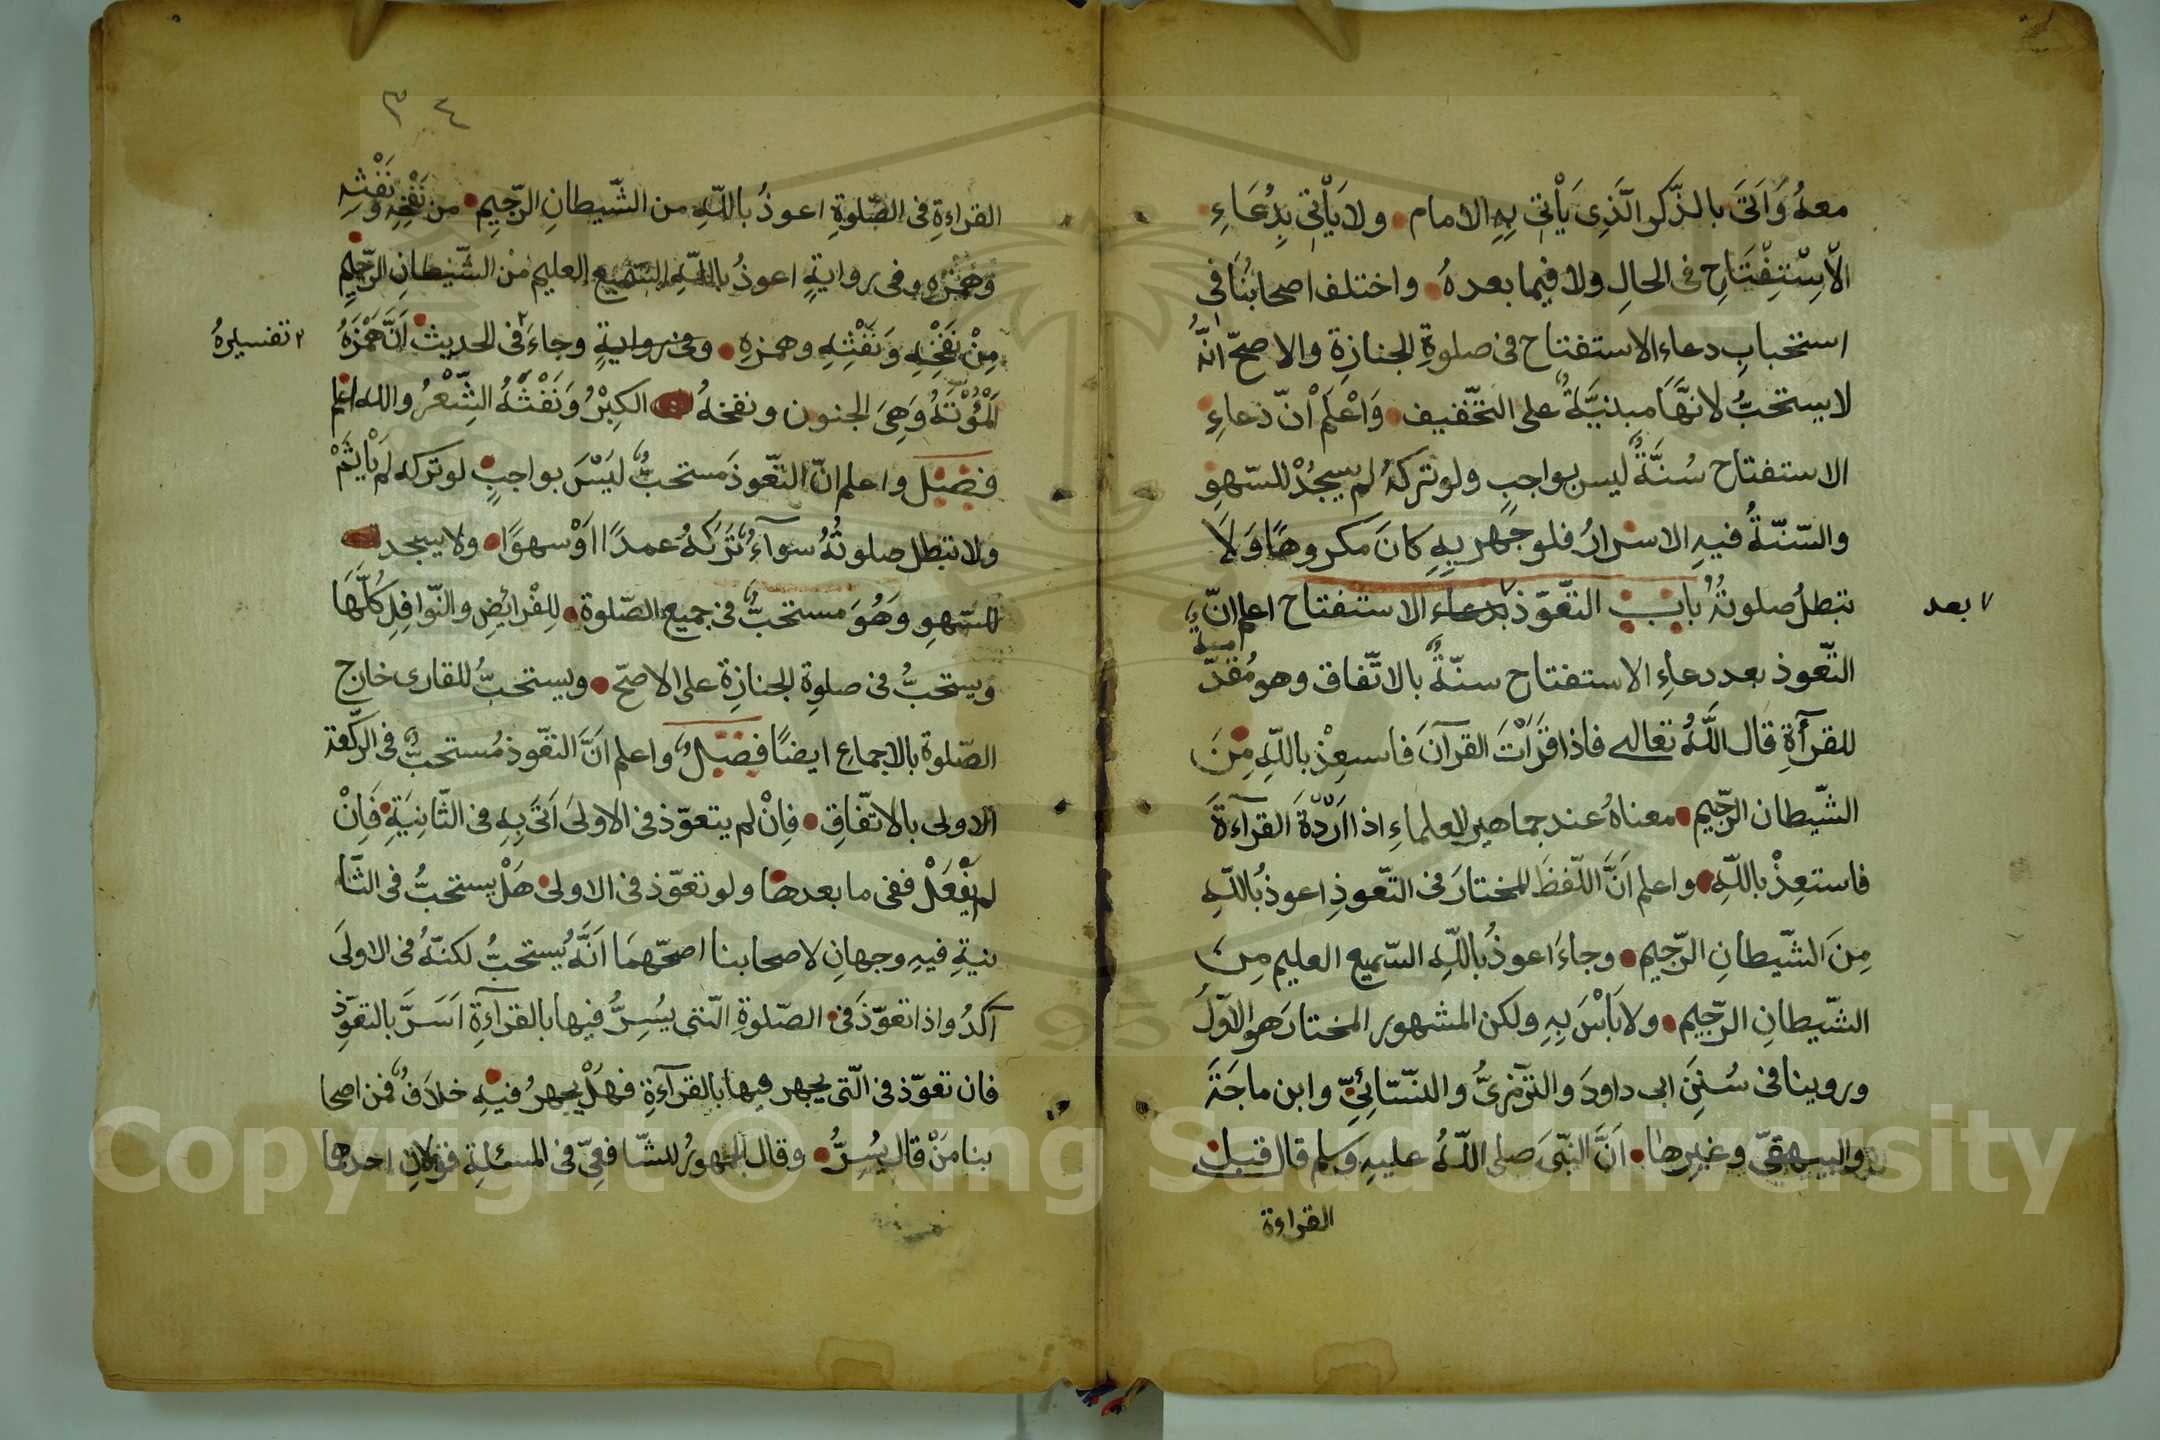 معهُ وَاَتَى بالذّكر الّذِى يَأْتِى بِهِ الامام ولا يَأْتِى بِدُعَاءِ
الْاِسْتِفْتَاحِ فى الحالِ ولا فيما بعدهُ واختلف اصحابُنَا فى
استحبابِ دعاء الاستفتاح فى صلوةِ الجنازة والاصحّ انّهُ
لا يستحبُّ لانهَّا مبنيَّةٌ على التخّفيف وَاعْلَمْ انّ دعاءِ
الاستفتاح سُنَّةٌ ليس بواجبٍ ولو تركهُ لم يسجُدْ للسّهوِ
والسّنّةُ فيهِ الاسرارُ فلو جهر بِهِ كانَ مكروهًا وَلَا
تبطلُ صلوتهُ بابُ التعّوّذ بدعاء الاستفتاح اعلم انّ
٧ بعد
التّعوذ بعد دعاءِ الاستفتاح سنّةٌ بالاتّفاق وهو مُقدّ
مة
للقرآءةِ قال اللّهُ تعالى فاذا قرَاْتَ القرآنَ فاسعِذْ باللّهِ مِنَ
الشّيطان الرّجيم معناهُ عند جماهير العلماءِ اذا اَرَدْتَ القرآءةَ
فاستعِذْ باللّهِ واعلم انَّ اللّفظَ المختارَ فى التّعوذِ اعوذُ باللّهِ
مِنَ الشّيطانِ الرّجيم وجاءَ اعوذُ باللّهِ السّميع العليم مِنَ
الشّيطانِ الرّجيم ولا بَأْسَ بِهِ ولكن المشهور المختارَ هو الاوّلُ
وروينا فى سُنَنِ ابى داودَ والتّرمزىُّ والنسّائىِّ وابن ماجَةَ
والبيهقىّ وغيرها انَّ النّبىَ صلى اللّهُ عليهِ وَسلم قال قبل
القراءة
٣٤
القراءةِ فى الصّلوةِ اعوذُ باللّهِ من الشّيطانِ الرّجيم من نَفْخِهِ ونَفْثِهِ
وَهَمْزِهِ وفى روايةٍ اعوذُ باللّهِ السّميع العليم من الشّيطانِ الرّجيم
مِنْ نَفْخِهِ وَنَفْثِهِ وهمزهِ وفى روايةٍ وجاءَ فى الحديث اَنَّ هَمْزَهُ
٢ تفسيرهُ
اَلْمُؤْتَةُ وَهِىَ الجنون ونفخهُ الكِبْرُ وَنَفْثُهُ الشِّعْرُ والله اعلم
فصل واعلم انّ التعّوذَ مستحبٌّ ليَسَ بواجبٍ لو تركه لَمْ يأْثَمْ
ولا تبطل صلوتُهُ سوآءٌ تَرَكهُ عمدًا اَوْ سهوًا ولا يسجد
للسّهوِ وَهُوَ مستحبٌّ فى جميع الصّلوة لِلفْرائضِ والنّوافِلِ كُلّهَا
ويستحبُّ فى صلوةِ الجنازةِ على الاصحّ ويستحبُّ للقارى خارج
الصّلوة بالاجماعِ ايضًا فصلٌ واعلم اَنَّ التعّوذ مُستحبٌّ فى الرّكعة
الاولى بالاتّفاقِ فِانْ لم يتعوّذ فى الاولىَ اَتَىَ بِهِ فى الثّانِيَةِ فَاِنْ
لم يَفْعَلْ ففى ما بعدها ولو تعوّذ فى الاولى هَلْ يستحبُّ فى الثّا
نيةِ فيهِ وجهانِ لاصحابنا اصحّهمَا اَنَّهُ يُستحبُّ لكنّهُ فى الاولىَ
آكدُ واذا تعوّذَ فى الصّلوةِ الّتى يُسِرُّ فيها بالقرآءةِ اَسَرَّ بالتعّوّذِ
فان تعوّذ فى الّتى يجهر فيها بالقرآءةِ فهَلْ يجهرُ فيهِ خلافٌ فمن اصحا
بنا مَنْ قال يُسِرُّ وقال الجمهورُ للشّافعىّ فى المسئلةِ قولانِ احدهما
Copyright © King Saud University